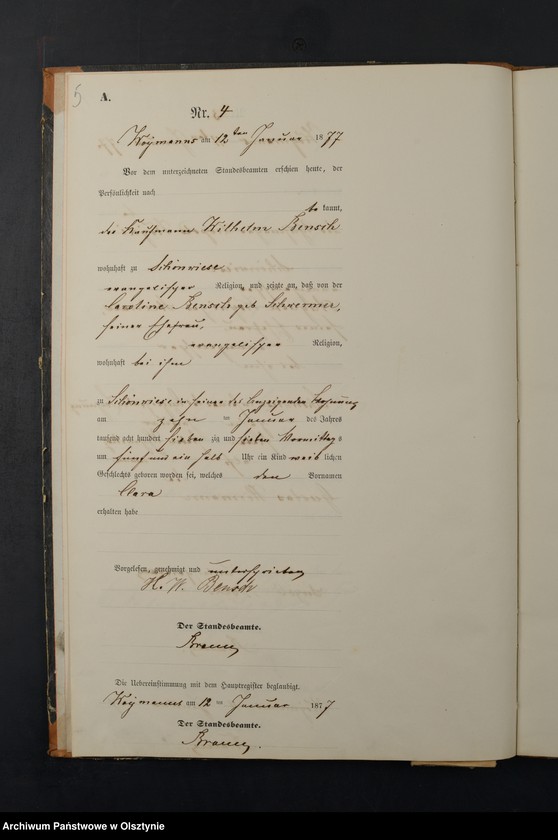 5
A.
Nr. 4
am 12ten Januar 1877
Vor dem unterzeichneten Standesbeamten erschien heute, der
Persönlichkeit nach
be kannt,
der Kaufmann Wilhelm Bensch
wohnhaft zu Schönwiese
evangelischer Religion, und zeigte an, daß von der
Caroline Bensch geb
seiner Ehefrau,
evangelischer Religion,
wohnhaft bei ihm
zu Schönwiese in seiner des Anzeigenden Wohnung
am zehn ten Januar des Jahres
tausend acht hundert sieben zig und sieben Vormittag s
um fünf und ein halb Uhr ein Kind weib lichen
Geschlechts geboren worden sei, welches den Vornamen
Clara
erhalten habe
Vorgelesen, genehmigt und unterschrieben
H. W. Bensch
Der Standesbeamte.
Die Uebereinstimmung mit dem Hauptregister beglaubigt.
am 12 ten Januar 1877
Der Standesbeamte.
Archiwum Państwowe w Olsztynie